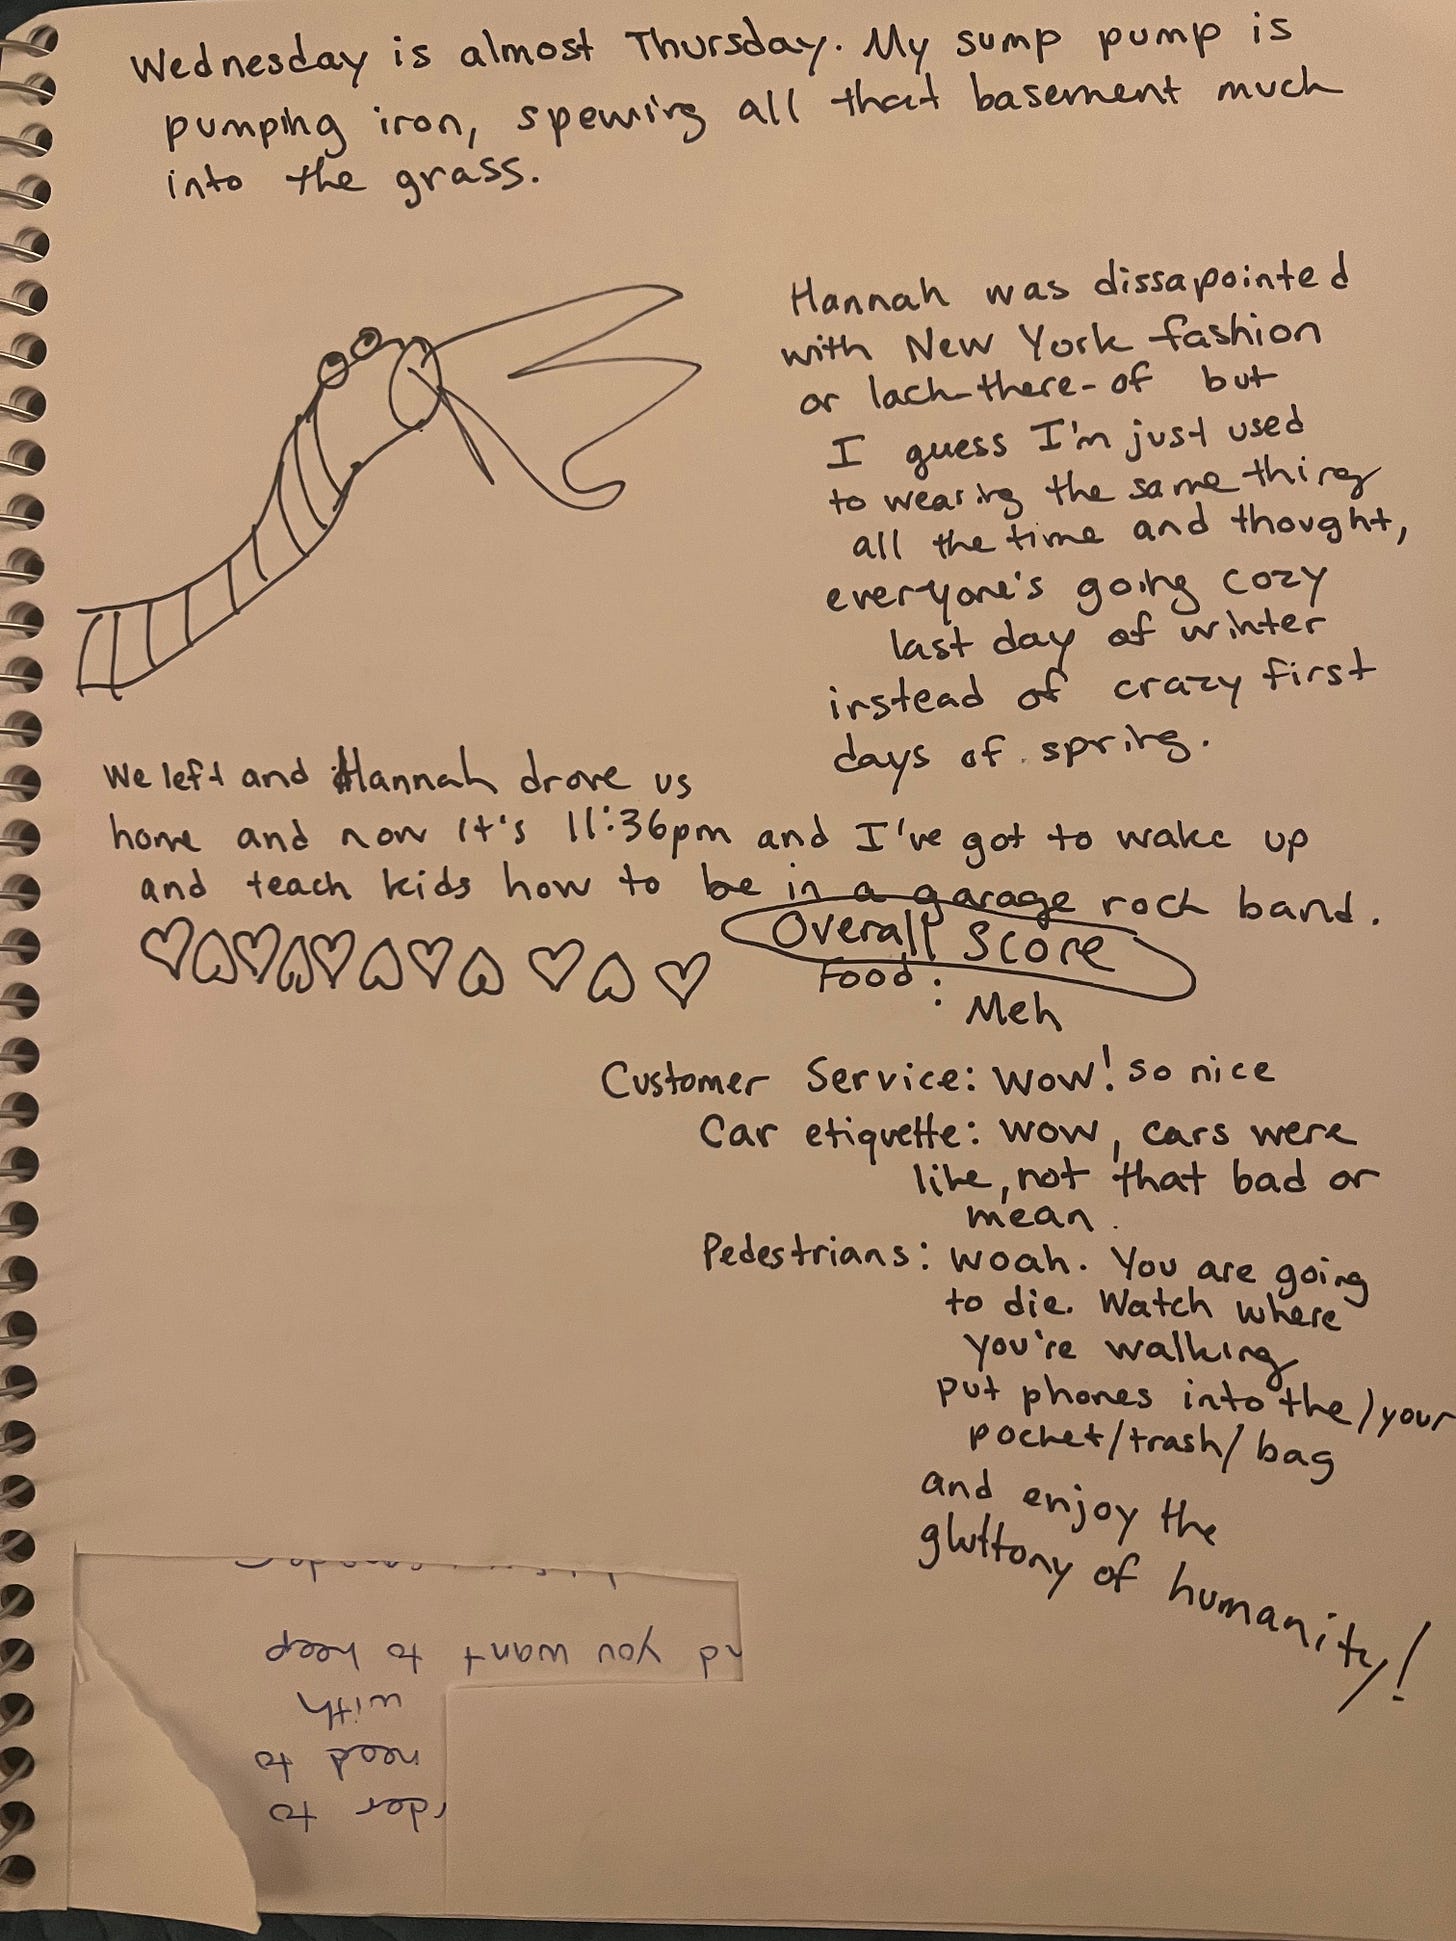 Wednesday is almost Thursday. My sump pump is
pumping iron, spewing all that basement much
into the grass.
Hannah was dissapointed
with New York fashion
or lack-there-of but
I guess I'm just used
to wearing the same thing
all the time and thought,
everyone's going cozy
last day of winter
instead of crazy first
days of spring.
We left and Hannah drove us
home and now it's 11:36pm and I've got to wake up
and teach kids how to be in a garage rock band.
Overall Score
Food: Meh
Customer Service: Wow! so nice
Car etiquette: wow, cars were
like, not that bad or
mean.
Pedestrians: woah. You are going
to die. Watch where
you're walking
put phones into the/your
pocket/trash/bag
and enjoy the
gluttony of humanity!
der to
need to
with
nd you want to keep